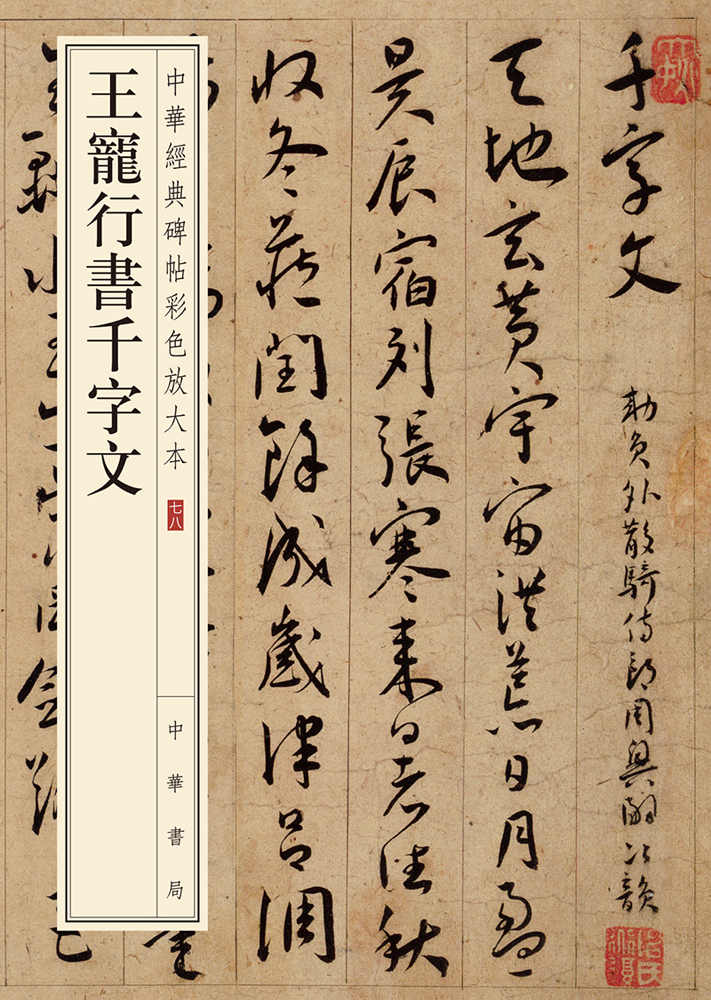 千字文
勅員外散騎侍郎周興嗣次韻
天地玄黃宇宙洪荒日月盈
昃辰宿列張寒来暑往秋
收冬藏閏餘成歲律呂調
中華經典碑帖彩色放大本
七八
中華書局
王寵行書千字文